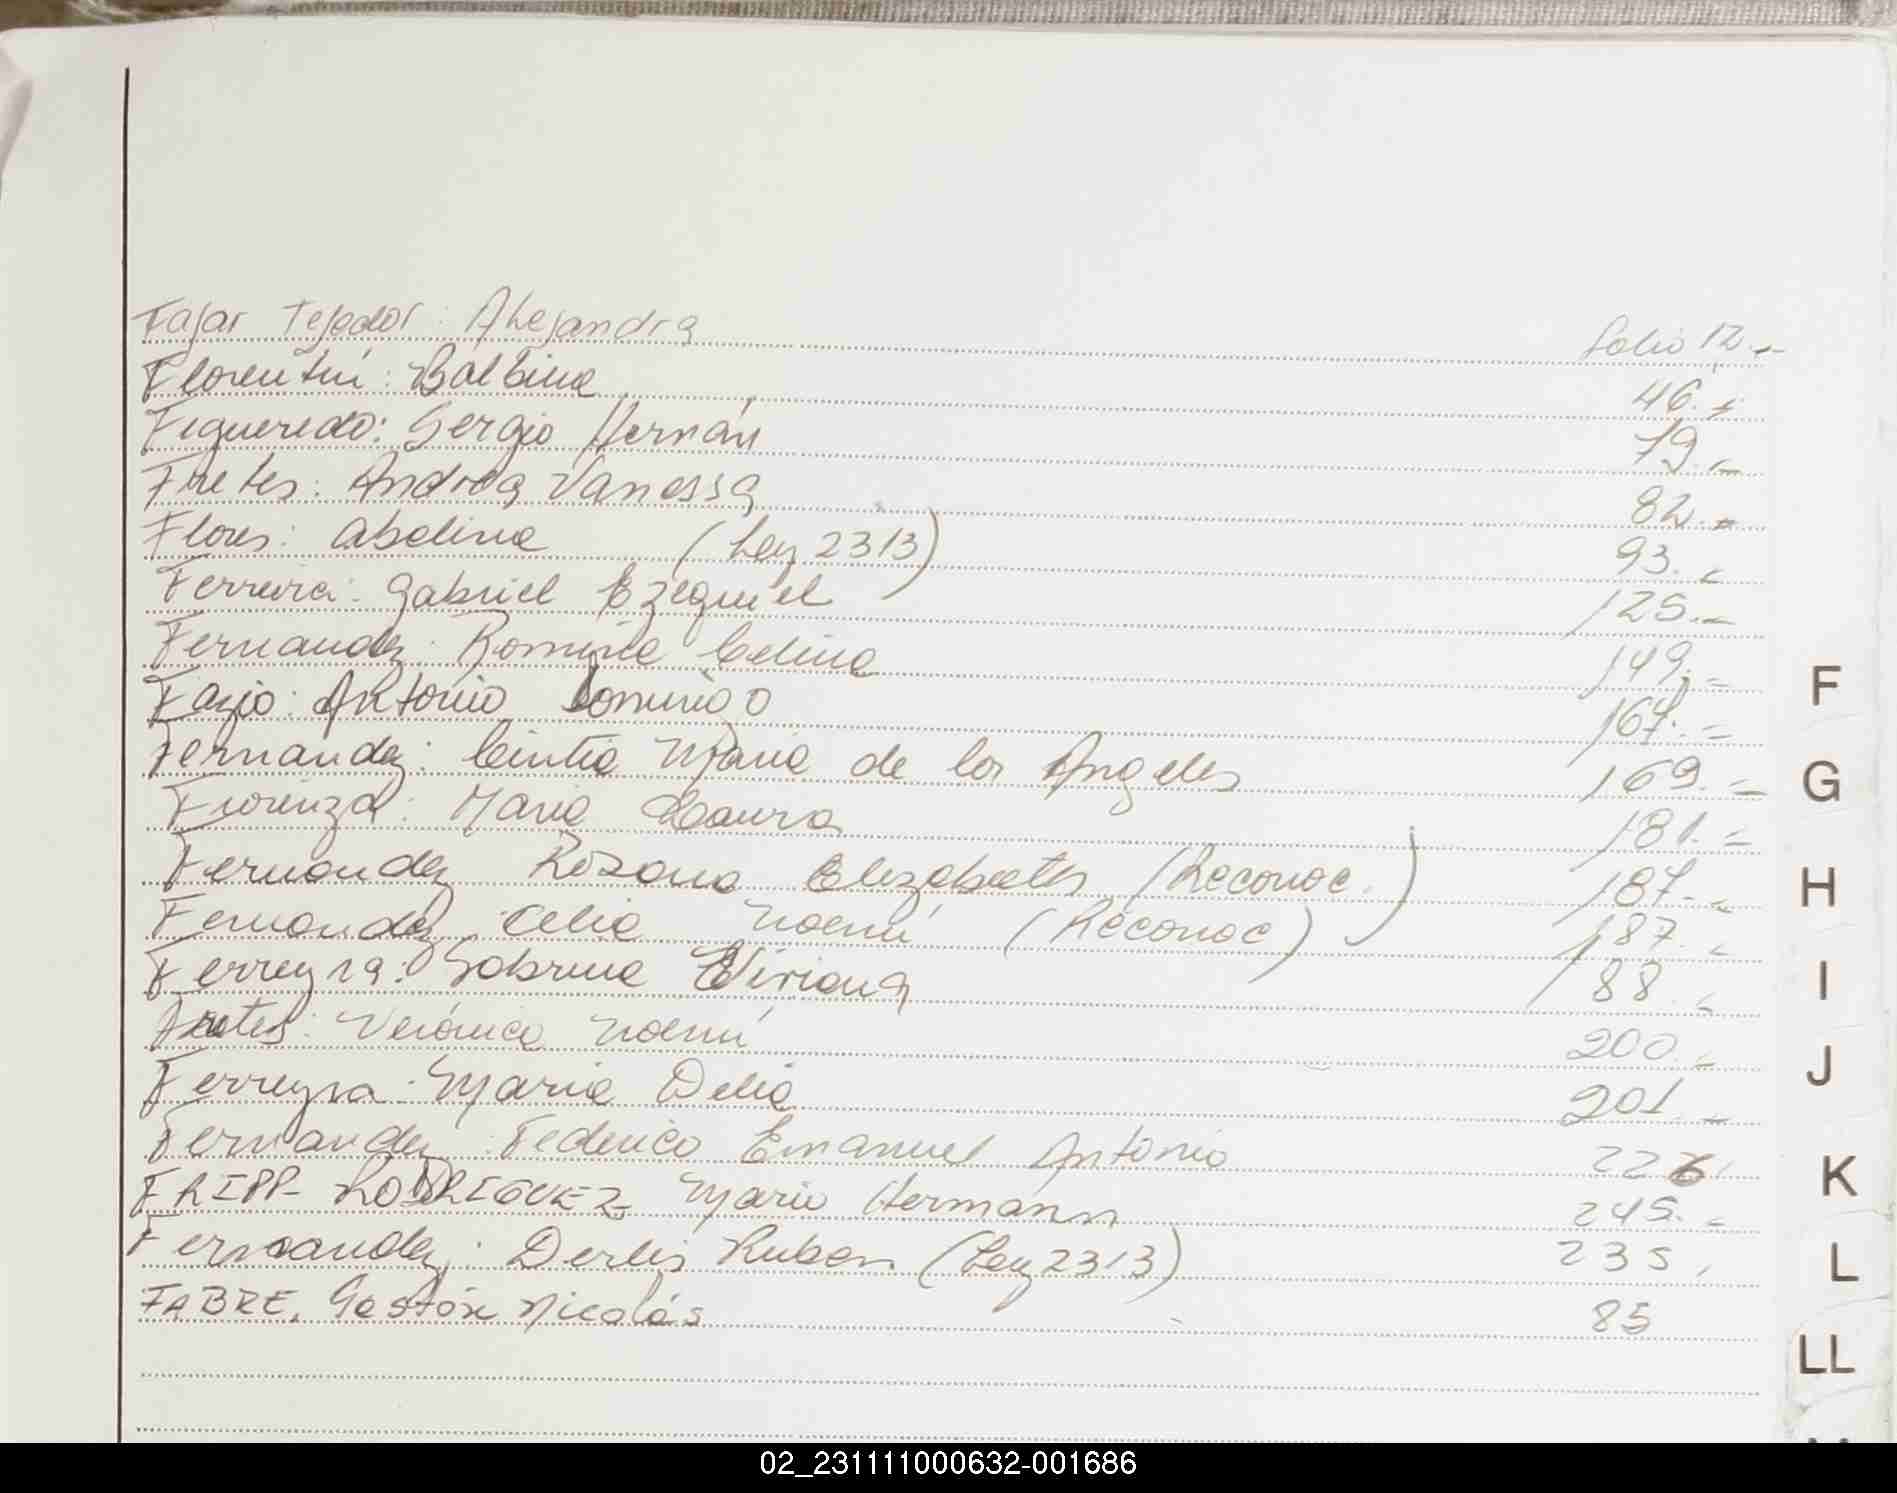 Fajar Tejedor: Alejandra folio 12.-
Florentín: Balbina 46.-
Figueredo: Sergio Hernán 79.-
Fretes: Andrea Vanessa 82.-
Flores: Abelina (Ley 2313) 93.-
Ferreira: Gabriel Ezequiel 125.-
Fernandez: Romina Celina 149.-
Fazio: Antonio Domingo 167.-
Fernandez: Cintia Maria de los Angeles 169.-
Fiorenza: Maria Laura 181.-
Fernandez Rosana Elizabeth (Reconoc.) 187.-
Fernandez Celia Noemí (Reconoc) 187.-
Ferreyra: Sabrina Viviana 188.-
Fretes: Verónica Noemí 200.-
Ferreyra: Maria Delia 201.-
Fernandez: Federico Emanuel Antonio 226.
FRIPP-RODRIGUEZ Mario Hermann 245.-
Fernandez: Derlis Ruben (Ley 2313) 235.
FABRE, Gastón Nicolás 85
F
G
H
I
J
K
L
LL
02_231111000632-001686